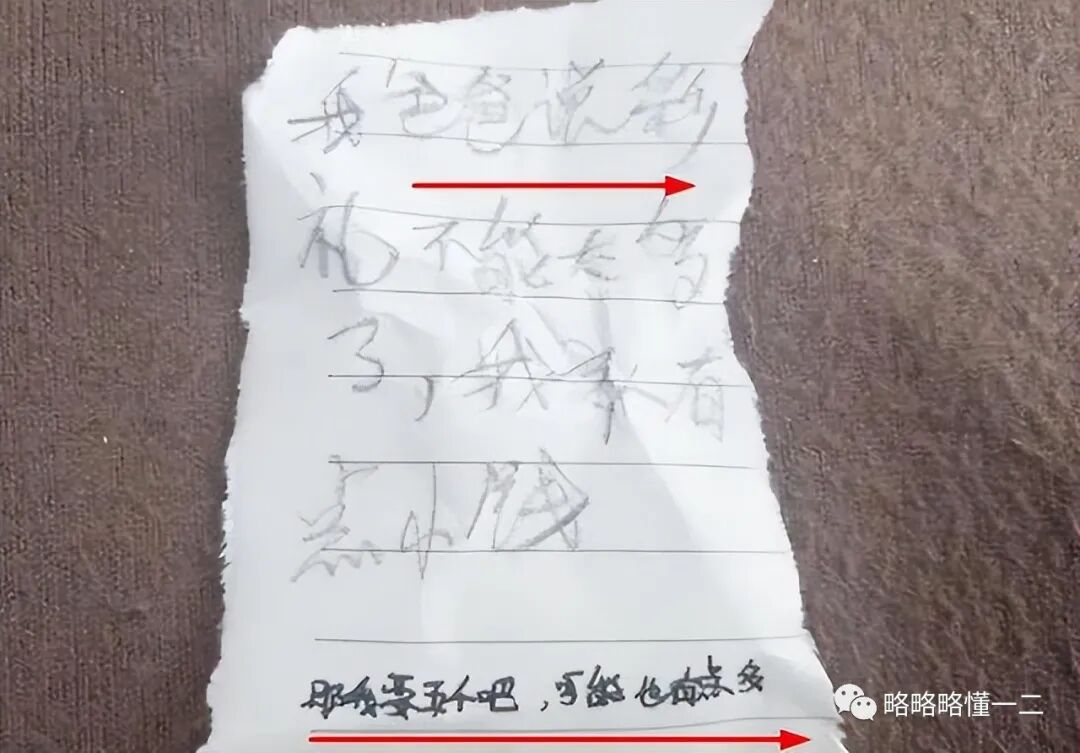 我爸爸说彩
礼不能太多
了，我家有
点小贱
那我要五个吧，可能也有点多
略略略懂一二